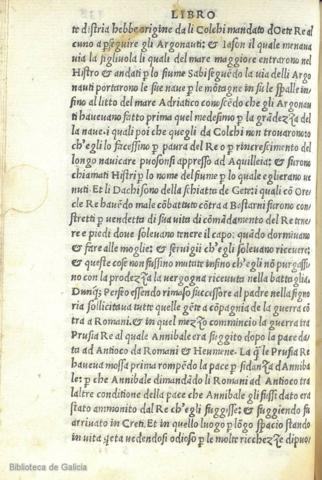 LIBRO
te distria hebbe origine da li Colchi mandato dOete Re al
cuno a ꝑseguire gli Argonauti: & Iason il quale menaua
uia la figliuola il quali del mare maggiore entrarono nel
Histro & andati ꝑ lo fiume Sabi seguẽdo la uia delli Argo
nauti portarono le sue naue ꝑ le mõtagne in su le spalle ĩn
fino al litto del mare Adriatico conoscẽdo che gli Argonau
ti haueuano fatto prima quel medesimo ꝑ la grãdezza del
la naue. i quali poi che quegli da Colchi non trouarono to
ch'egli lo facessino ꝑ paura del Re o ꝑ rincrescimento del
longo nauicare puosonsi appresso ad Aquilleia: & furono
chiamati Histri ꝑ lo nome del fiume ꝑ lo quale eglierano ue
nuti. Et li Dachi sono della schiatta de Getei quali cõ Ore
cle Re hauẽdo male cõbattuto cõtra a Bastarni furono con
stretti ꝑ uendetta di sua uita di cõmãdamento del Re tene
re e piedi doue soleuano tenere il capo: quãdo dormiuano
& fare alle moglie: & seruigii ch'egli soleuano riceuere:
& queste cose non fussino mutate infino ch'egli nõ purgassi
no con la prodezza la uergogna riceuuta nella battaglia.
Dunq; Perseo essendo rimaso successore al padre nella signo
ria sollicitaua tutte quelle gẽte a cõpagnia de la guerra cõ
tra a Romani. & in quel mezzo comminciò la guerra tra
Prusia Re al quale Annibale era fuggito dopo la pace da
ta ad Antioco da Romani & Heumene. La q̃le Prusia Re
haueua mossa prima rompẽdo la pace ꝑ fidanza d Anniba
le: ꝑ che Annibale dimandãdo li Romani ad Antioco tra
laltre conditione della pace che Annibale gli fussi dato era
stato ammonito dal Re ch'egli fuggisse: & fuggiendo fu
arriuato in Creti. Et in quello luogo ꝑ lõgo spacio stando
in uita q̃eta uedendosi odioso ꝑ le molte ricchezze dipuo
Biblioteca de Galicia